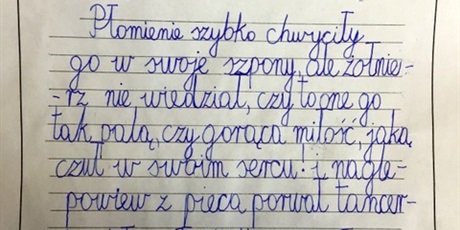 Płomienie szybko chwyciły
go w swoje szpony, ale żołnie-
-rz nie wiedział, czy to one go
tak palą, czy gorąca miłość, jaką
czuł w swoim sercu! i nagle-
powiew z pieca porwał tancer-